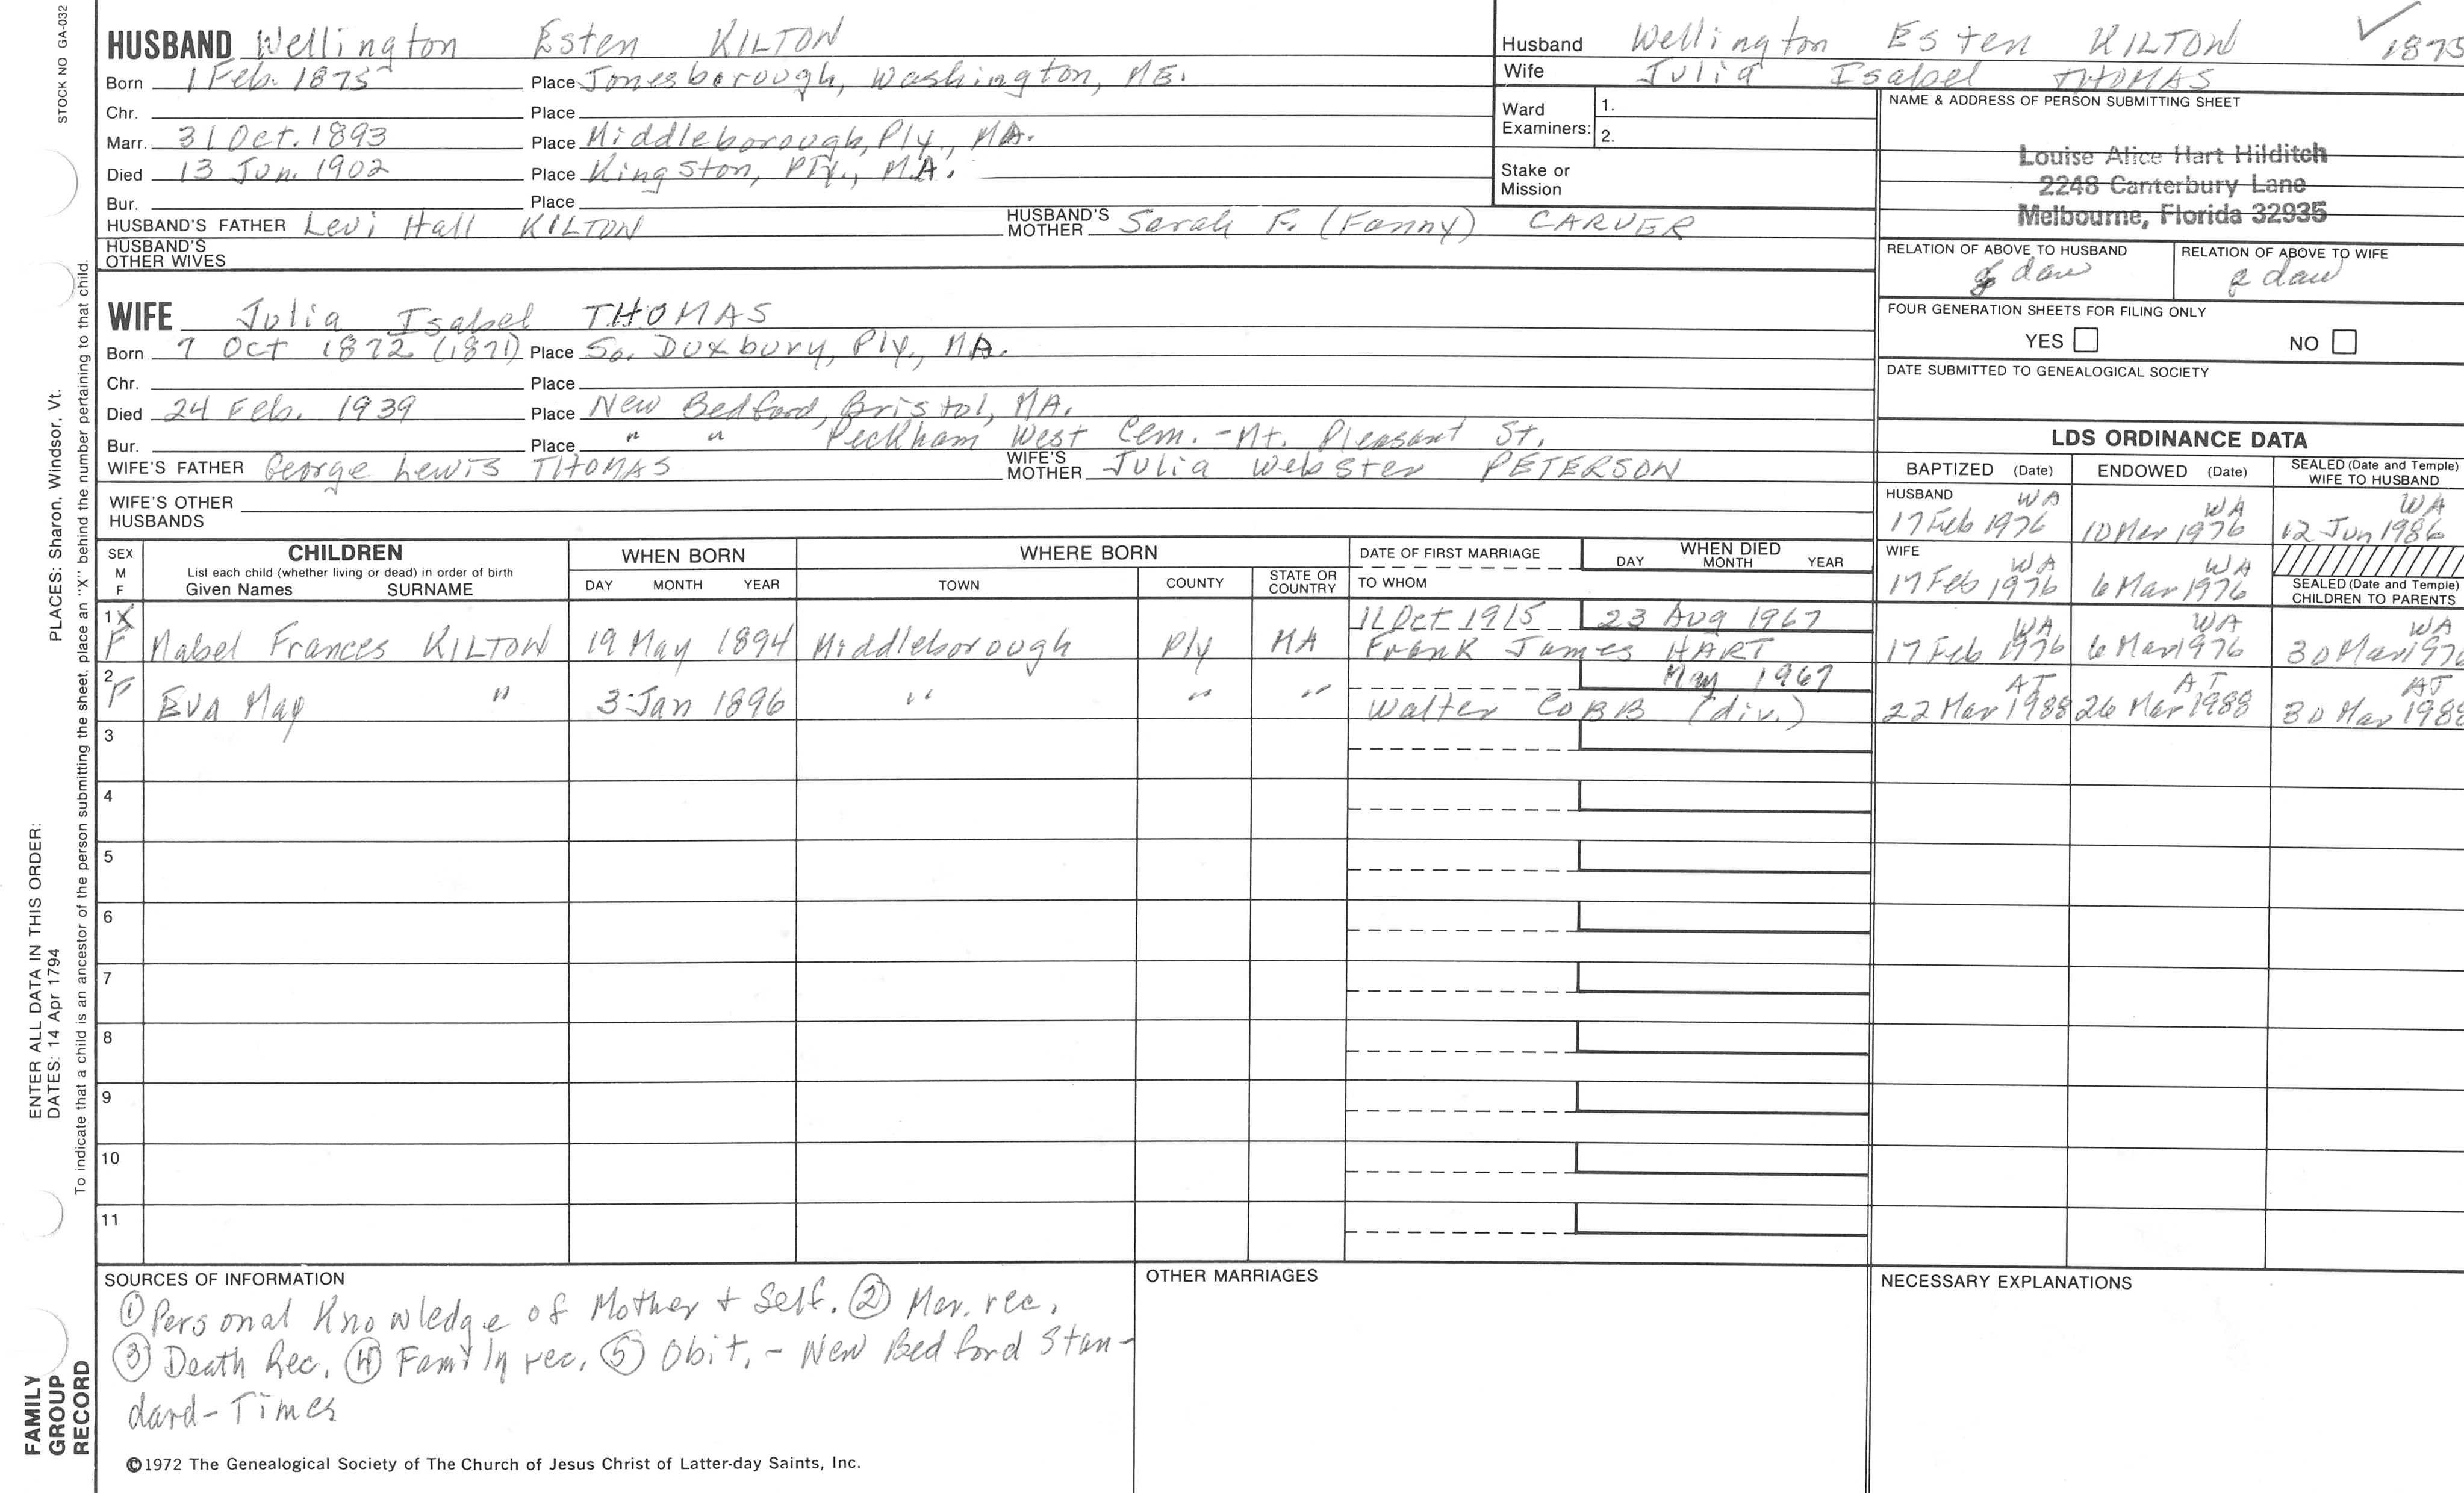 STOCK NO GA-032
HUSBAND Wellington Esten KILTON
Born 1 Feb. 1875 Place Jonesborough, Washington, ME.
Chr. Place
Marr. 31 Oct. 1893 Place Middleborough, Ply., MA.
Died 13 Jun. 1902 Place Kingston, Ply., MA.
Bur. Place
HUSBAND'S FATHER Levi Hall KILTON HUSBAND'S MOTHER Sarah F. (Fanny) CARVER
HUSBAND'S OTHER WIVES
WIFE Julia Isabel THOMAS
Born 7 Oct 1872 (1871) Place So. Duxbury, Ply., MA.
Chr. Place
Died 24 Feb. 1939 Place New Bedford, Bristol, MA.
Bur. Place " " Peckham West Cem. - Mt. Pleasant St.
WIFE'S FATHER George Lewis THOMAS WIFE'S MOTHER Julia Webster PETERSON
WIFE'S OTHER HUSBANDS
Husband Wellington Esten KILTON ✓ 1875
Wife Julia Isabel THOMAS
Ward Examiners: 1.
2.
Stake or Mission
NAME & ADDRESS OF PERSON SUBMITTING SHEET
Louise Alice Hart Hilditch
2248 Canterbury Lane
Melbourne, Florida 32935
RELATION OF ABOVE TO HUSBAND RELATION OF ABOVE TO WIFE
g dau g dau
FOUR GENERATION SHEETS FOR FILING ONLY
YES NO
DATE SUBMITTED TO GENEALOGICAL SOCIETY
LDS ORDINANCE DATA
BAPTIZED (Date) ENDOWED (Date) SEALED (Date and Temple) WIFE TO HUSBAND
HUSBAND WA WA WA
17 Feb 1976 10 Mar 1976 12 Jun 1986
WIFE WA WA
17 Feb 1976 6 Mar 1976 SEALED (Date and Temple) CHILDREN TO PARENTS
SEX M F CHILDREN WHEN BORN WHERE BORN DATE OF FIRST MARRIAGE WHEN DIED
List each child (whether living or dead) in order of birth
Given Names SURNAME DAY MONTH YEAR TOWN COUNTY STATE OR COUNTRY TO WHOM DAY MONTH YEAR
1 X 11 Oct 1915 23 Aug 1967 WA WA WA
F Mabel Frances KILTON 19 May 1894 Middleborough Ply MA Frank James HART 17 Feb 1976 6 Mar 1976 30 Mar 197
2 May 1967 AT AT AT
F Eva May " 3 Jan 1896 " " " Walter COBB (div.) 22 Mar 1988 26 Mar 1988 30 Mar 1988
3
4
5
6
7
8
9
10
11
SOURCES OF INFORMATION
① Personal Knowledge of Mother + Self. ② Mar. rec.
③ Death Rec. ④ Family rec. ⑤ Obit. - New Bedford Stan-
dard-Times
OTHER MARRIAGES
NECESSARY EXPLANATIONS
©1972 The Genealogical Society of The Church of Jesus Christ of Latter-day Saints, Inc.
ENTER ALL DATA IN THIS ORDER: PLACES: Sharon, Windsor, Vt.
DATES: 14 Apr 1794
To indicate that a child is an ancestor of the person submitting the sheet, place an "X" behind the number pertaining to that child.
FAMILY
GROUP
RECORD